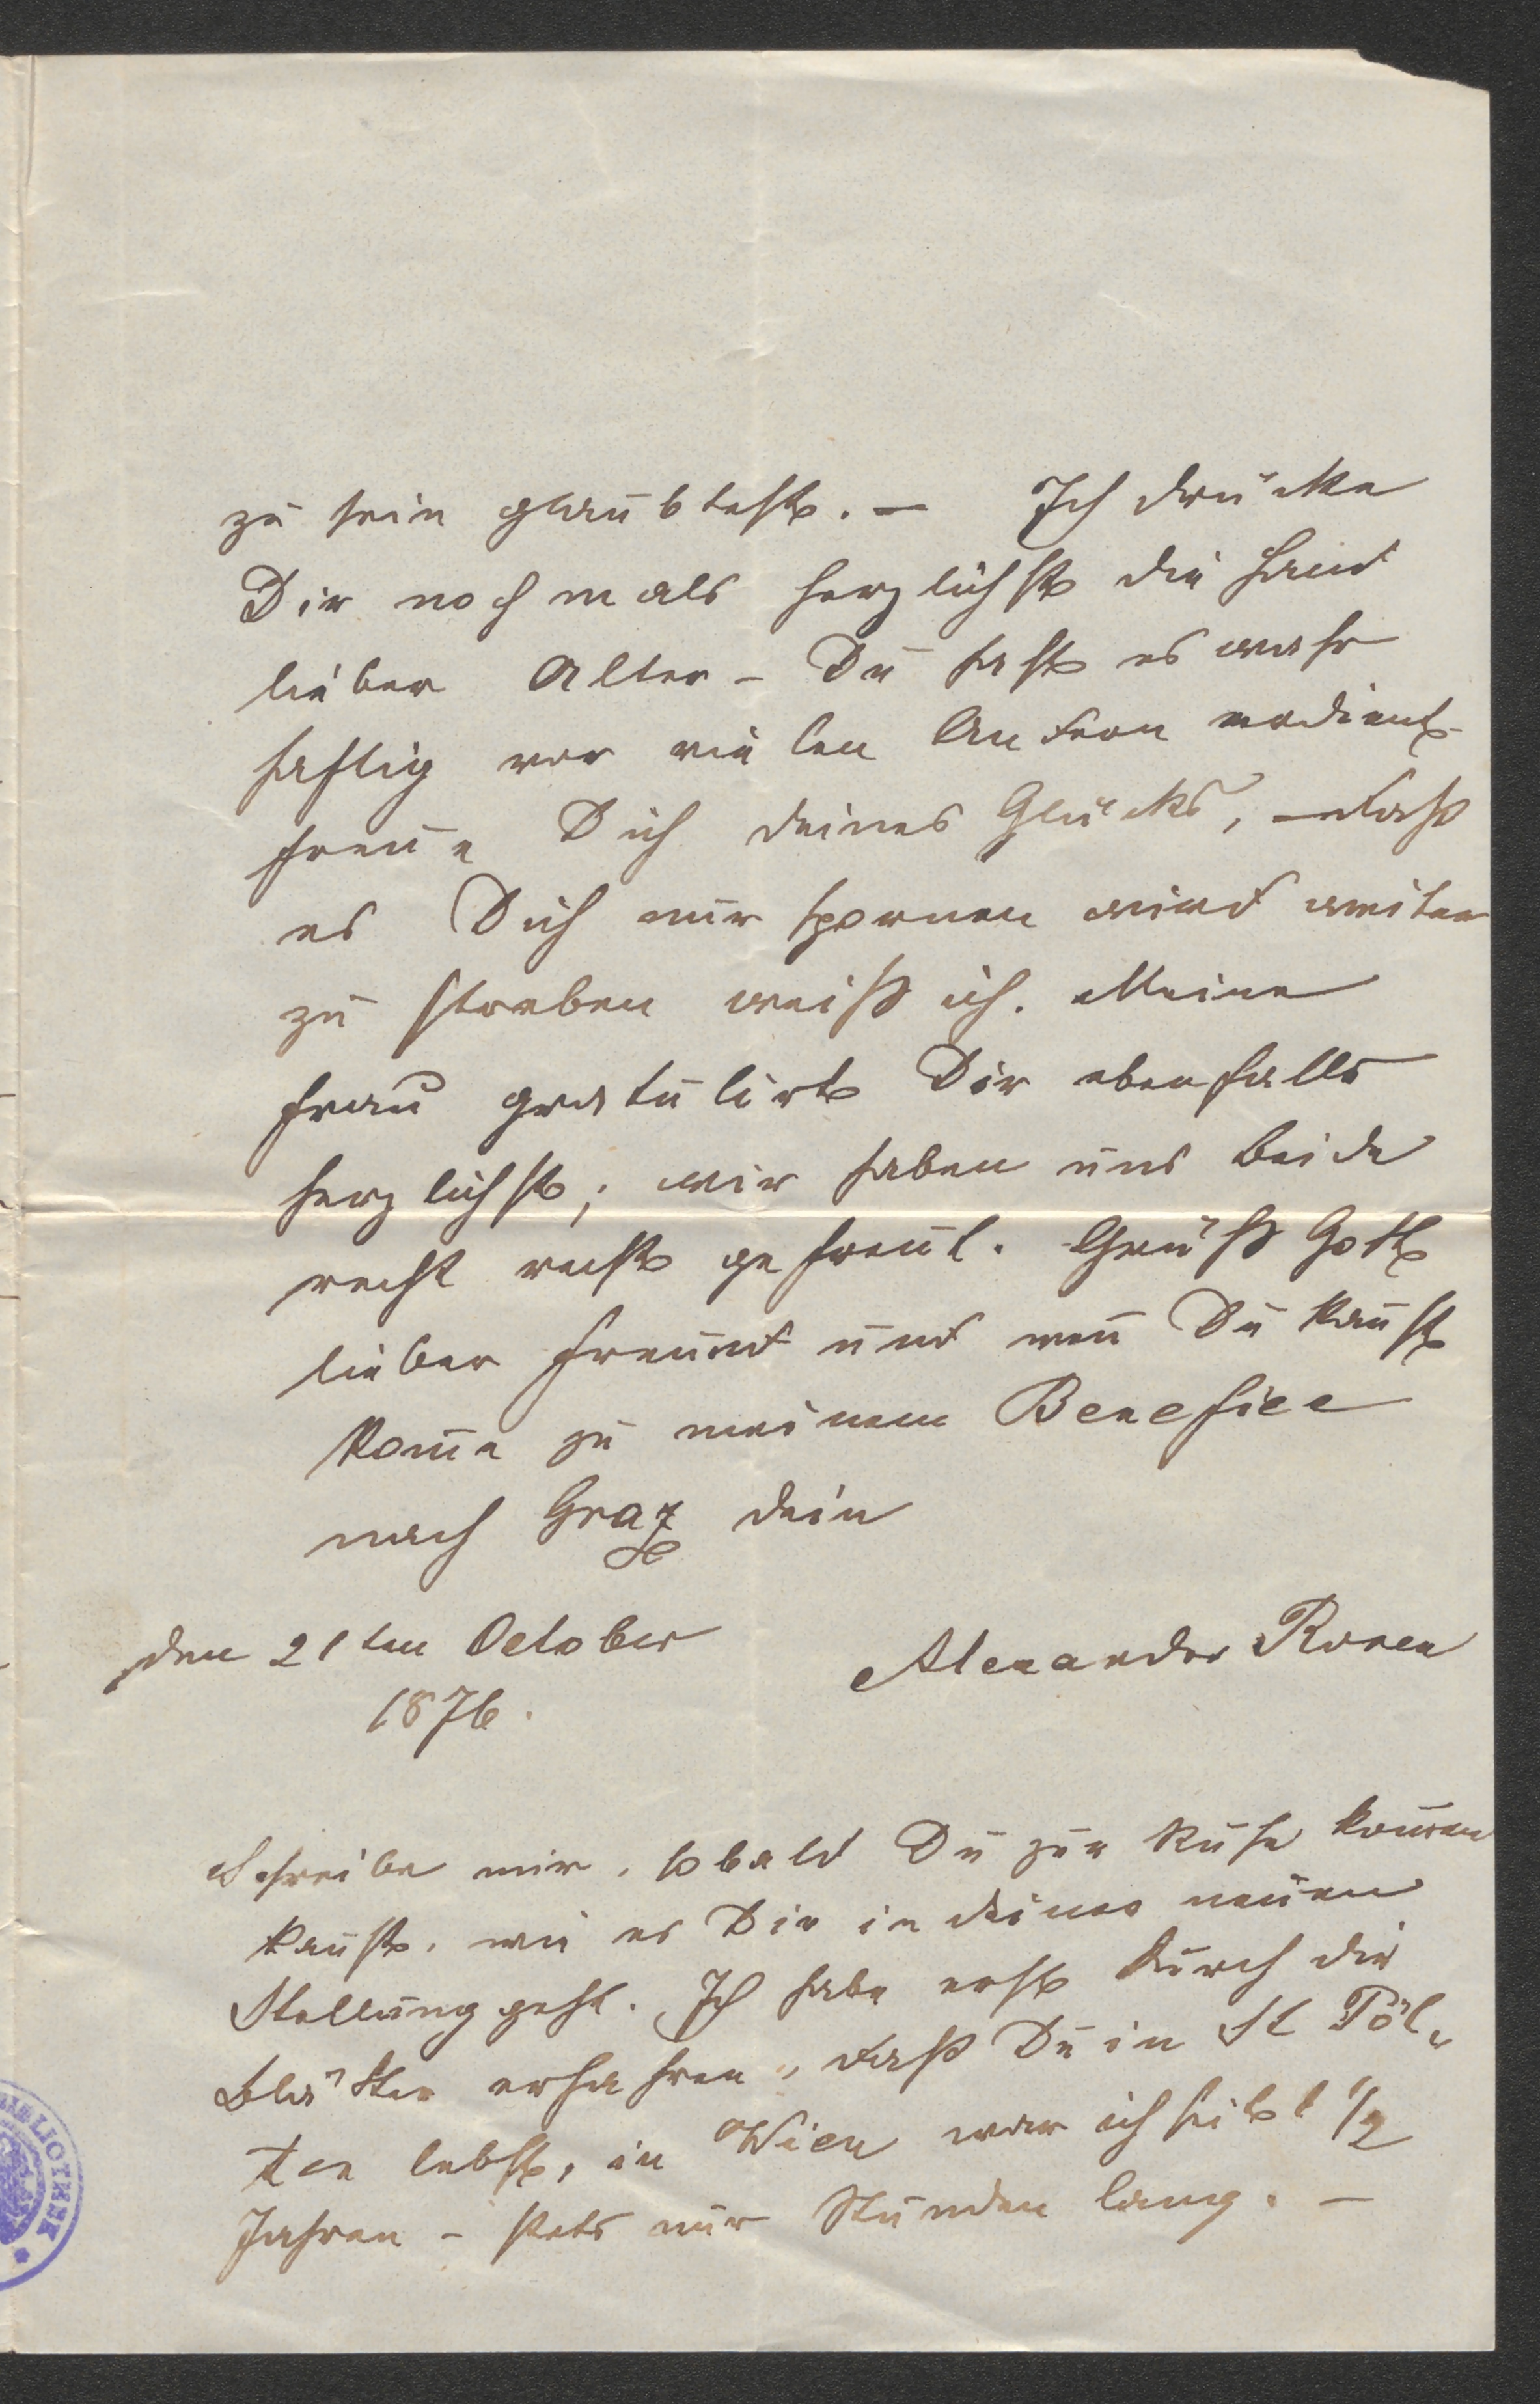 zu sein glaubtest. — Ich drücke
Dir nochmals herzlichst die Hand
lieber Alter – Du hast es wahr
haftig vor vielen Andern verdient –
freue Dich deines Glücks, – daß
es Dich nur spornen wird weiter
zu streben weiß ich. Meine
Frau gratulirt Dir ebenfalls
herzlichst; wir haben uns beide
recht recht gefreut. Grüß Gott
lieber Freund und wen̄ Du kan̄st
kom̄e zu meinem Benefice
nach Graz dein
den 21ten October
1876.
Alexander Rosen
Schreibe mir, sobald Du zur Ruhe kom̄en
kan̄st, wie es Dir in deiner neuen
Stellung geht. Ich habe erst durch die
Blätter erfahren, daß Du in St Pöl-
ten lebst, in Wien war ich seit 1 1/2
Jahren – stets nur Stunden lang. –
BIBLIOTHEK